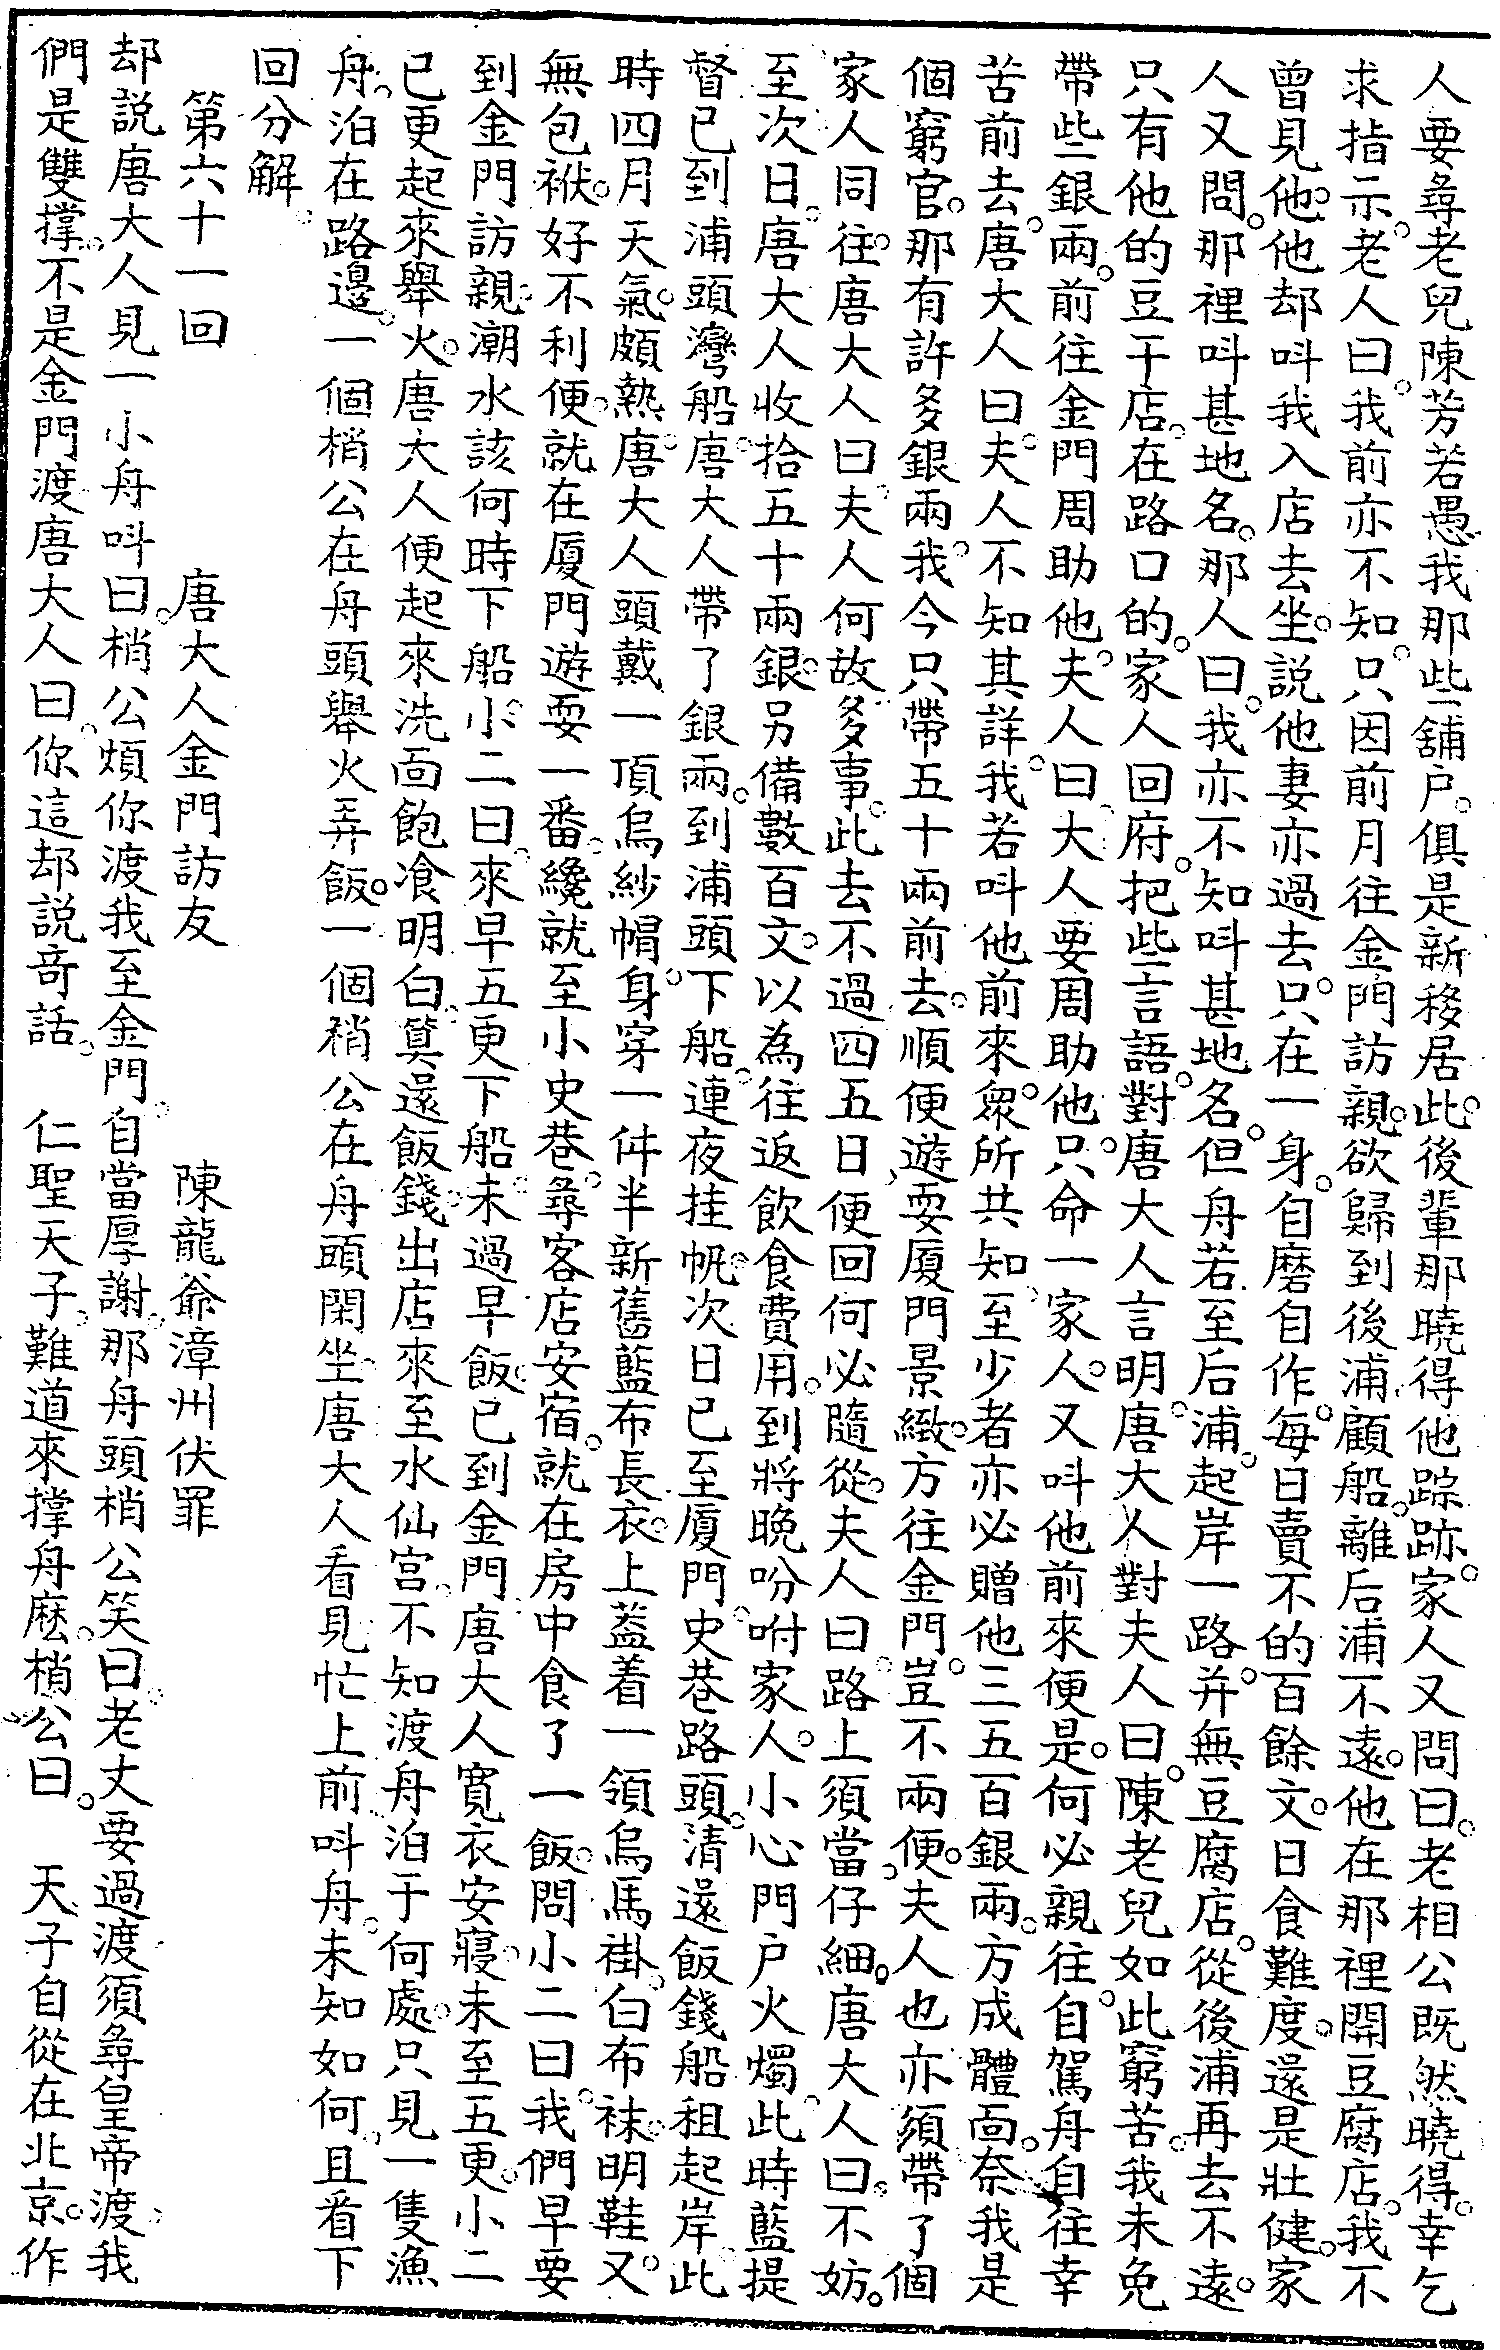 人要尋老兒陳芳若愚我那些舖户。俱是新移居此。後輩那曉得他踪跡。家人又問曰。老相公既然曉得。幸乞
求指示。老人曰。我前亦不知。只因前月往金門訪親。欲歸到後浦顧船。離后浦不遠。他在那裡開豆腐店。我不
曾見他。他却呌我入店去坐。説他妻亦過去。只在一身。自磨自作。每日賣不的百餘文。日食難度。還是壯健。家
人又問。那裡呌甚地名。那人曰。我亦不知呌甚地名。但舟若至后浦。起岸一路。并無豆腐店。從後浦再去不遠。
只有他的豆干店。在路口的。家人回府。把些言語。對唐大人言明。唐大人對夫人曰。陳老兒如此窮苦。我未免
帶些銀兩。前往金門周助他。夫人曰。大人要周助他。只命一家人。又呌他前來便是。何必親往。自駕舟自往幸
苦前去。唐大人曰。夫人不知其詳。我若呌他前來。衆所共知。至少者亦必贈他三五百銀兩。方成體面。奈我是
個窮官。那有許多銀兩。我今只帶五十兩前去。順便遊耍厦門景緻。方往金門。豈不兩便。夫人也亦須帶了個
家人同往。唐大人曰。夫人何故多事。此去不過四五日。便回何必隨從。夫人曰。路上須當。仔細。唐大人曰。不妨。
至次日。唐大人收拾五十兩銀。另備數百文。以為往返飲食費用。到將晚吩咐家人。小心門户火燭。此時藍提
督已到浦頭灣船。唐大人帶了銀兩。到浦頭下船。連夜挂帆。次日已至厦門。史巷路頭。清還飯錢船租起岸。此
時四月天氣。頗熱。唐大人頭戴一頂烏紗帽。身穿一件半新舊藍布長衣。上葢着一領烏馬褂。白布袜。明鞋。又
無包袱。好不利便。就在厦門遊耍一番。纔就至小史巷。尋客店安宿。就在房中食了一飯。問小二曰。我們早要
到金門訪親。潮水該何時下船。小二曰。來早五更下船。未過早飯。已到金門。唐大人寬衣安寢。未至五更。小二
已更起來舉火。唐大人便起來洗面飽飡明白。筭還飯錢。出店來至水仙宫。不知渡舟泊于何處。只見一隻漁
舟。泊在路邊。一個梢公在舟頭舉火弄飯。一個稍公在舟頭閑坐。唐大人看見忙上前呌舟。未知如何。且看下
回分解。
第六十一回　唐大人金門訪友　陳龍爺漳州伏罪
却説唐大人見一小舟呌曰。梢公煩你渡我至金門。自當厚謝。那舟頭梢公笑曰。老丈要過渡須尋皇帝渡。我
們是雙撑。不是金門渡。唐大人曰。你這却説竒話。　仁聖天子。難道來撑舟麽。梢公曰。　天子自從在北京。作